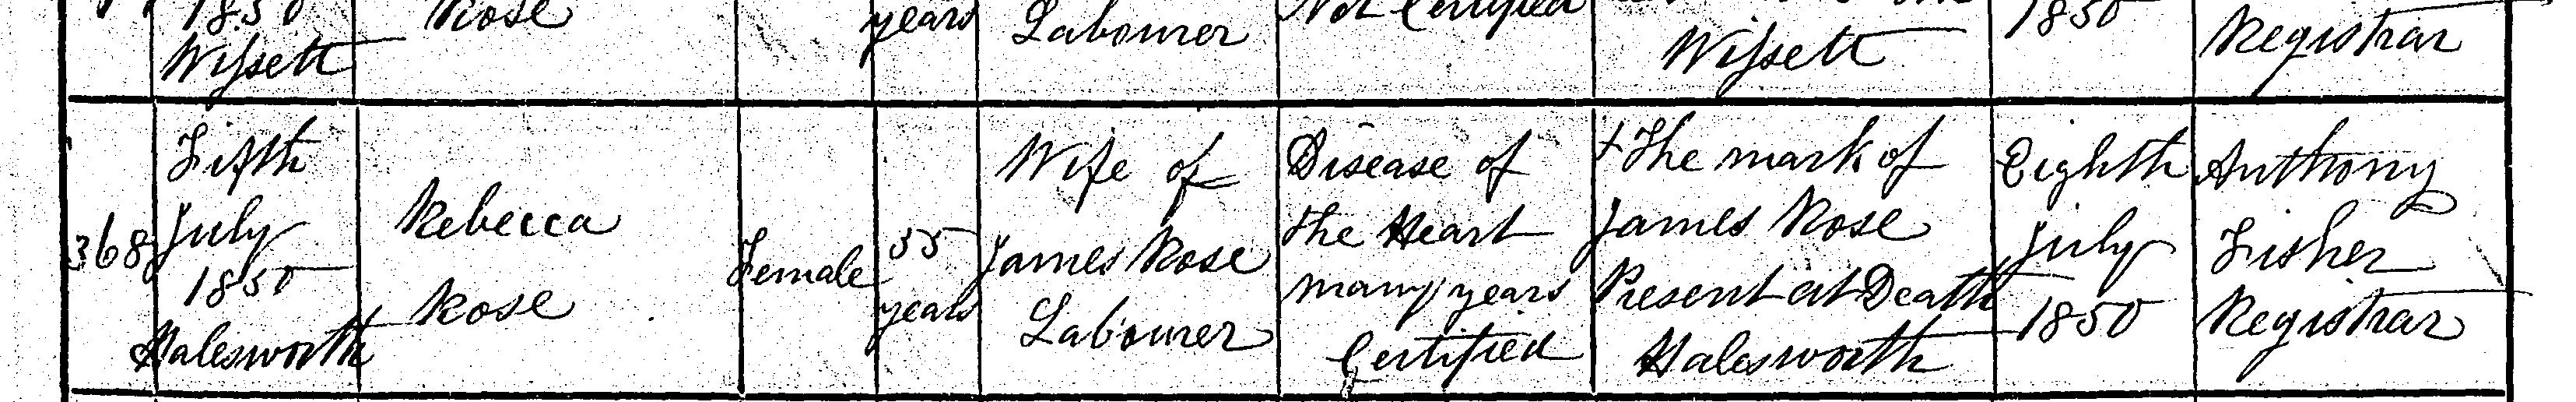 1850
Wissett
Rose
years
Labourer
Not Certified
Wissett
1850
Registrar
368
Fifth
July
1850
Halesworth
Rebecca
Rose
Female
55
years
Wife of
James Rose
Labourer
Disease of
the Heart
many years
Certified
+ The mark of
James Rose
Present at Death
Halesworth
Eighth
July
1850
Anthony
Fisher
Registrar